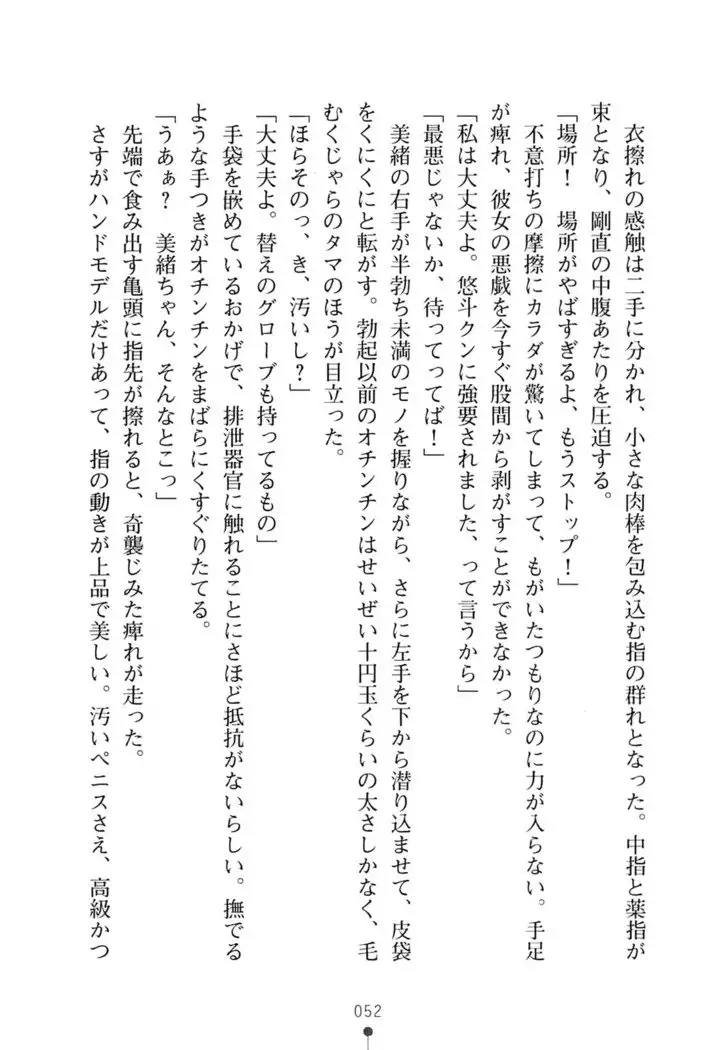 衣擦れの感触は二手に分かれ、小さな肉棒を包み込む指の群れとなった。中指と薬指が
束となり、剛直の中腹あたりを圧迫する。
「場所！　場所がやばすぎるよ、もうストップ！」
不意打ちの摩擦にカラダが驚いてしまって、もがいたつもりなのに力が入らない。手足
が痺れ、彼女の悪戯を今すぐ股間から剥がすことができなかった。
「私は大丈夫よ。悠斗クンに強要されました、って言うから」
「最悪じゃないか、待ってってば！」
美緒の右手が半勃ち未満のモノを握りながら、さらに左手を下から潜り込ませて、皮袋
をくにくにと転がす。勃起以前のオチンチンはせいぜい十円玉くらいの太さしかなく、毛
むくじゃらのタマのほうが目立った。
「ほらそのっ、き、汚いし？」
「大丈夫よ。替えのグローブも持ってるもの」
手袋を嵌めているおかげで、排泄器官に触れることにさほど抵抗がないらしい。撫でる
ような手つきがオチンチンをまばらにくすぐりたてる。
「うあぁ？　美緒ちゃん、そんなとこっ」
先端で食み出す亀頭に指先が擦れると、奇襲じみた痺れが走った。
さすがハンドモデルだけあって、指の動きが上品で美しい。汚いペニスさえ、高級かつ
052